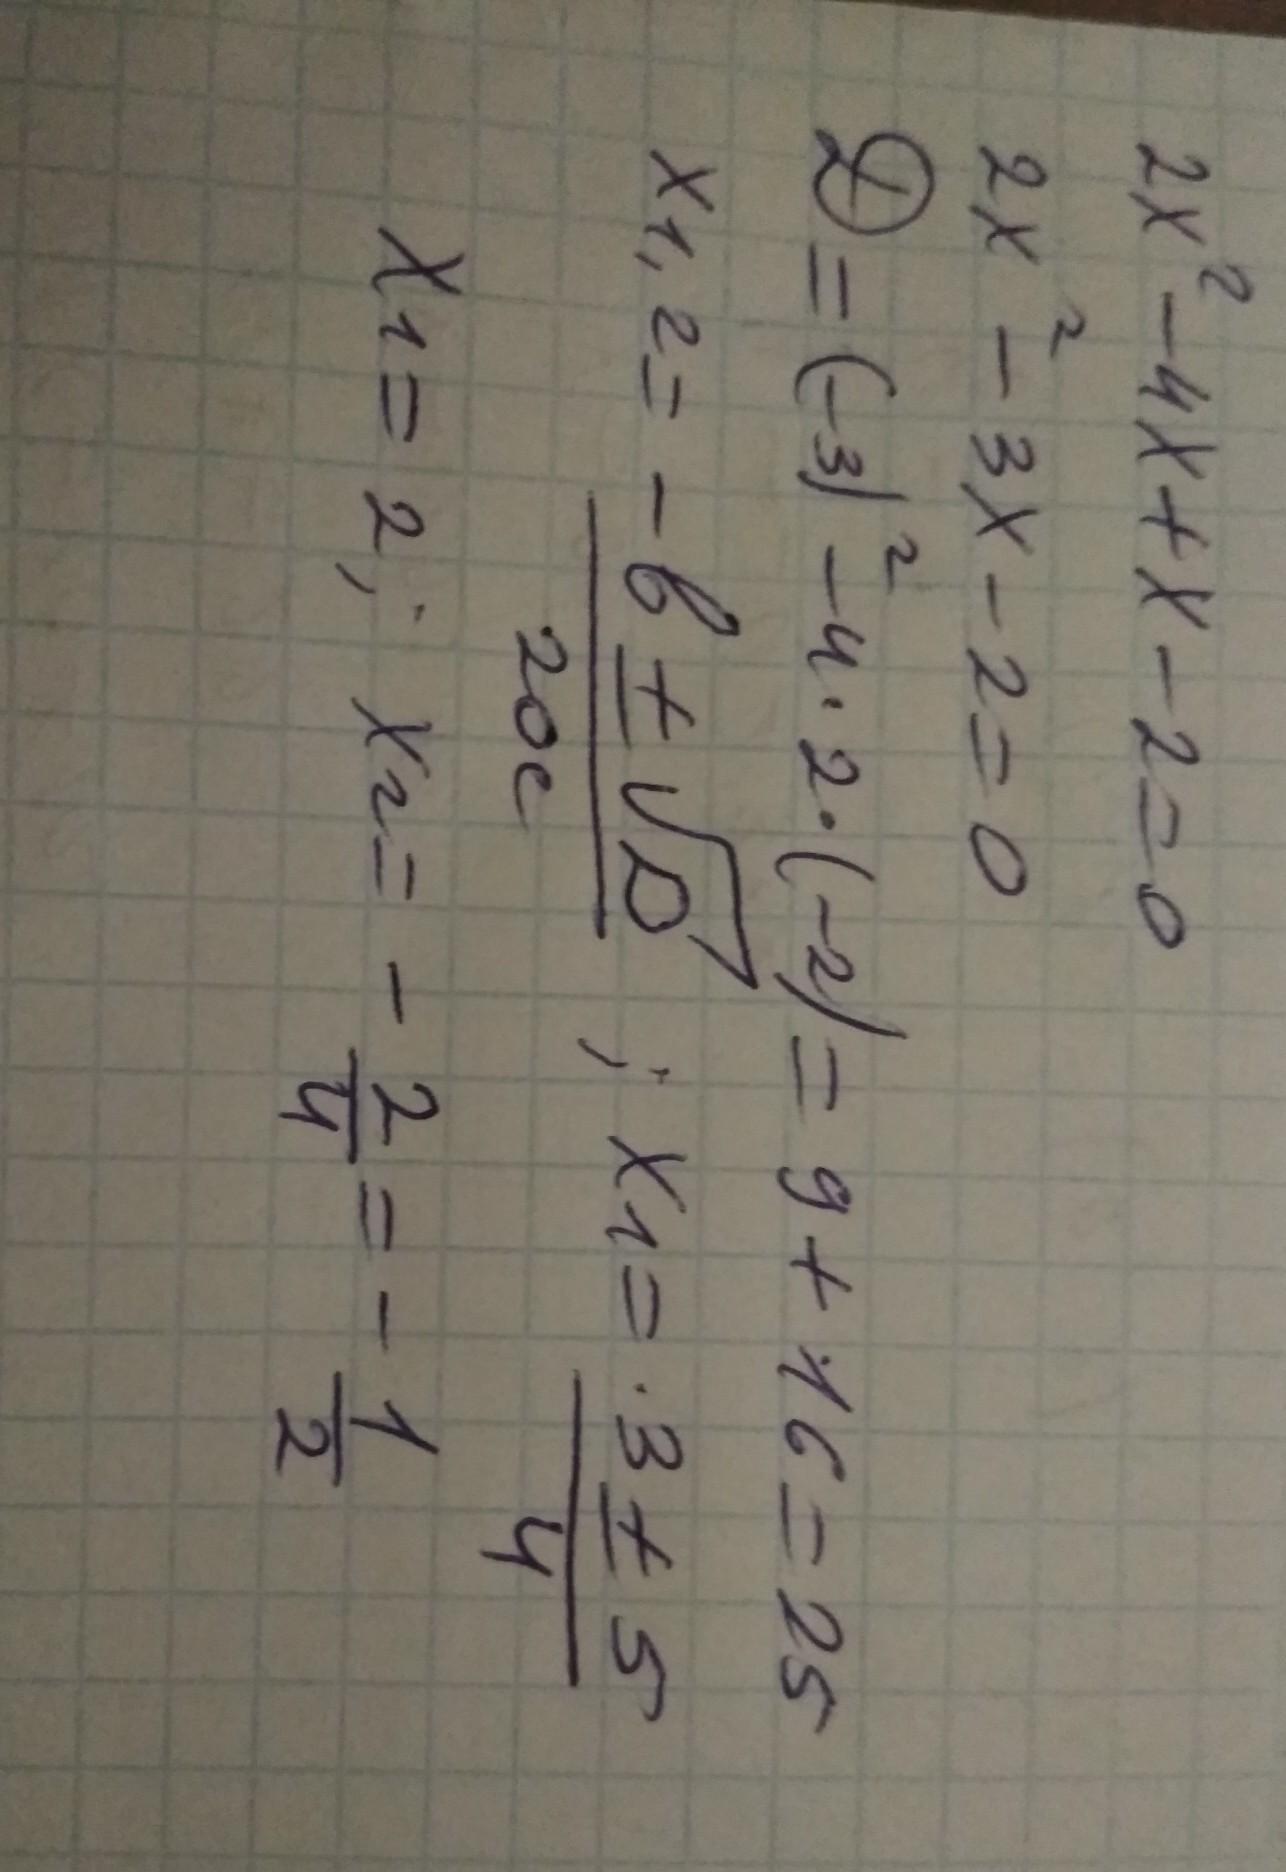 2x² - 4x + x - 2 = 0
2x² - 3x - 2 = 0
D = (-3)² - 4 · 2 · (-2) = 9 + 16 = 25
x1,2 = (-b ± √D) / 2a ; x1 = (3 ± 5) / 4
x1 = 2; x2 = - 2/4 = - 1/2